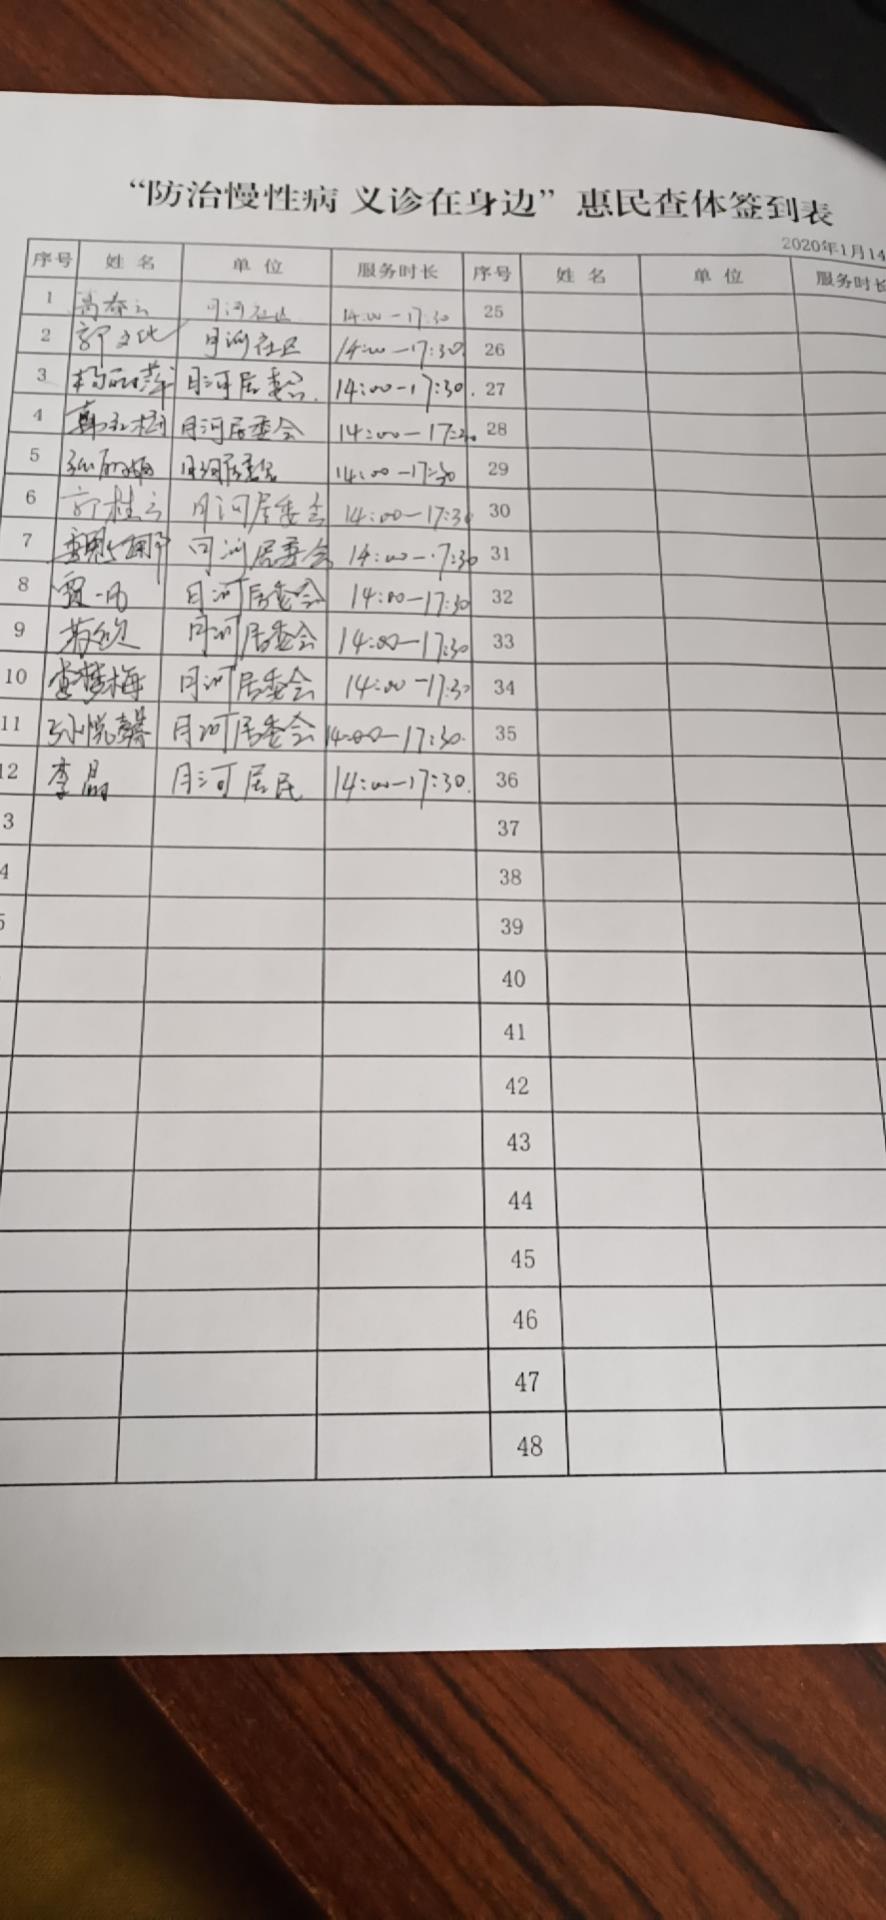 “防治慢性病 义诊在身边”惠民查体签到表
2020年1月14
序号 姓 名 单 位 服务时长 序号 姓 名 单 位 服务时长
1 月河社区 14:00-17:30 25
2 郭文化 月河社区 14:00-17:30 26
3 月河居委会. 14:00-17:30. 27
4 月河居委会 14:00-17:30 28
5 月河居委会 14:00-17:30 29
6 郭桂云 月河居委会 14:00-17:30 30
7 月河居委会 14:00-17:30 31
8 月河居委会 14:00-17:30 32
9 月河居委会 14:00-17:30 33
10 李梦梅 月河居委会 14:00-17:30 34
11 孙悦馨 月河居委会 14:00-17:30. 35
12 李晶 月河居民 14:00-17:30. 36
3 37
4 38
5 39
40
41
42
43
44
45
46
47
48